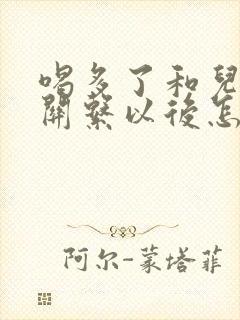 喝多了和兒
開繫以後怎
阿尔-蒙塔菲